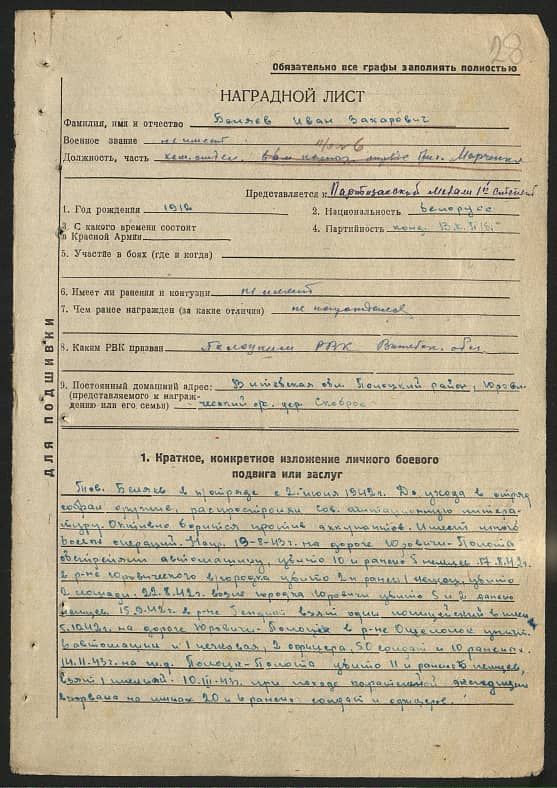 28
Обязательно все графы заполнять полностью
НАГРАДНОЙ ЛИСТ
Фамилия, имя и отчество Беляев Иван Захарович
Военное звание не имеет
Должность, часть ком. отдел.
Представляется к Партизанской медали 1й степени
1. Год рождения 1912 2. Национальность белорусс
3. С какого времени состоит
в Красной Армии 4. Партийность
5. Участие в боях (где и когда)
6. Имеет ли ранения и контузии не имеет
7. Чем ранее награжден (за какие отличия) не награждался
8. Каким РВК призван Полоцким РВК Витебск. обл.
9. Постоянный домашний адрес: Витебская обл. Полоцкий район, Юрови
(представляемого к награж-
дению или его семьи) ческий дер.
ДЛЯ ПОДШИВКИ
1. Краткое, конкретное изложение личного боевого
подвига или заслуг
Тов. Беляев в п/отряде с 2 июня 1942г. До ухода в отряд
собрал оружие, распространял сов. литера-
туру. Активно борится против оккупантов. Имеет много
боевых операций. 19-8-43г. на дороге Юровичи-Полота
обстрелял автомашину, убито 10 и ранено 5 немцев. 17.8.42г.
в р-не Юровичского в/городка убито 2 и ранен 1 немец, убито
2 лошади. 22.8.42г. возле городка Юровичи убито 5 и 2 ранено
немцев. 15.9.42г. в р-не взят один полицейский в плен
5.10.42г. на дороге Юровичи-Полоцк в р-не
автомашины и 1 легковая, 2 офицера, 50 солдат и 10 раненых.
14.11.43г. на ж.д. Полоцк-Полота убито 11 и ранено 6 немцев,
взят 1 пленный. 10.III-43г. при походе экспедиции
взорвано на минах 20 и ранено солдат и офицеров.